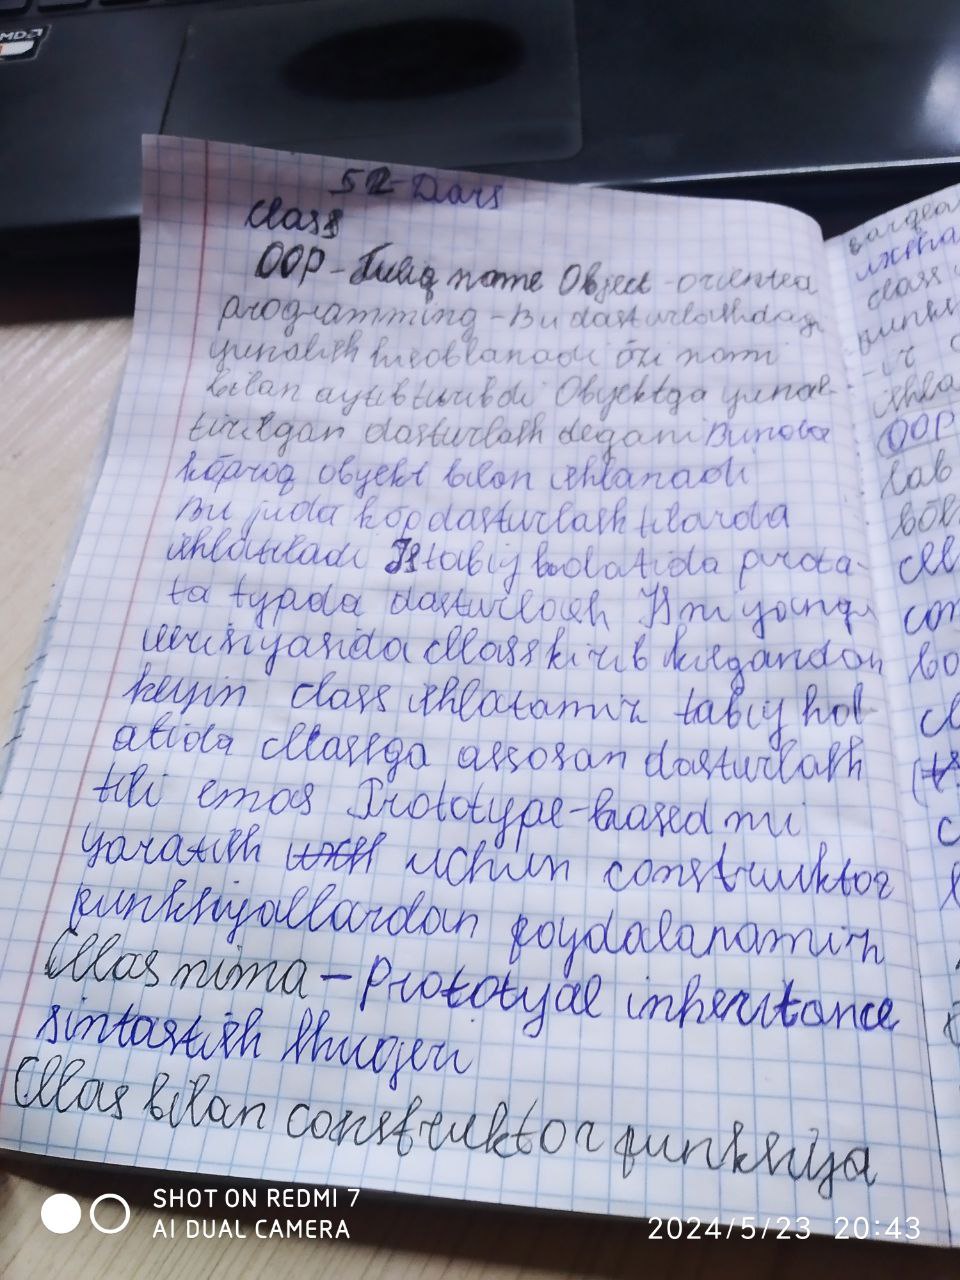 AMD
52-Dars
class
OOP - Tuliq name Object - oriented
programming - Bu dasturlashdagi
yunalish hisoblanadi özi nomi
bilan aytib turibdi Obyektga yunal-
tirilgan dasturlash degani Bunda
köproq obyekt bilan ishlanadi
Bu juda köp dasturlash tilarda
ishlatiladi Js tabiy holatida prota-
ta typda dasturlash
class kirib kelgandan
keyin class ishlatamiz tabiy hol-
atida cllassga assosan dasturlash
tili emas Prototype-based ni
yaratish uchun construktor
funkhiyallardan foydalanamiz
Cllas nima - Prototyal inheritance
sintastish shugeri
Cllas bilan construktor funkhiya
class
funks
ishla
OOP
lab
böl
cll
con
bo
SHOT ON REDMI 7
AI DUAL CAMERA
2024/5/23 20:43